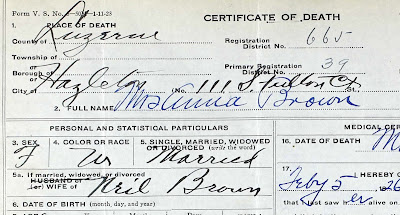 Form V. S. No. 5-50M-1-11-23
CERTIFICATE OF DEATH
1. PLACE OF DEATH
County of Luzerne
Registration District No. 665
Township of
or
Borough of Hazleton
Primary Registration District No. 39
or
City of
(No. 111 S. Fulton Ct St.
2. FULL NAME Mrs Anna Brown
PERSONAL AND STATISTICAL PARTICULARS
MEDICAL CER
3. SEX F
4. COLOR OR RACE W
5. SINGLE, MARRIED, WIDOWED OR DIVORCED (write the word) Married
16. DATE OF DEATH
5a. If married, widowed, or divorced
HUSBAND of
(or) WIFE of Neil Brown
17. I HEREBY C
Feby 5 26
that I last saw h er alive on
6. DATE OF BIRTH (month, day, and year)